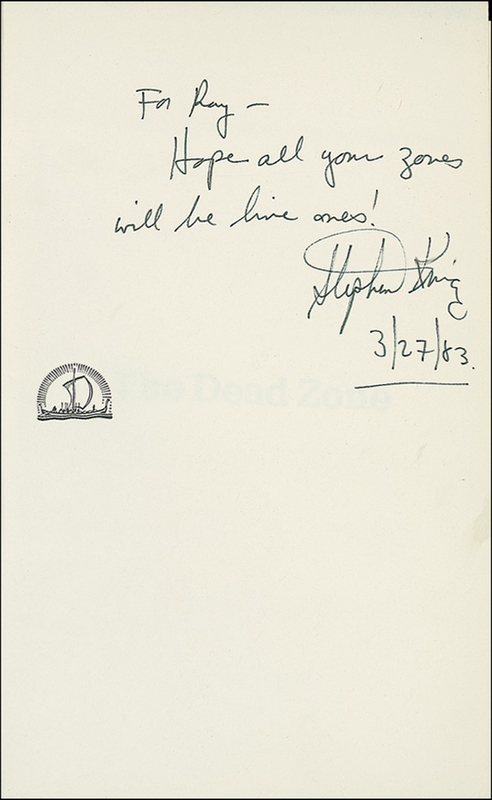 For Ray –
Hope all your zones
will be live ones!
Stephen King
3/27/83.
The Dead Zone